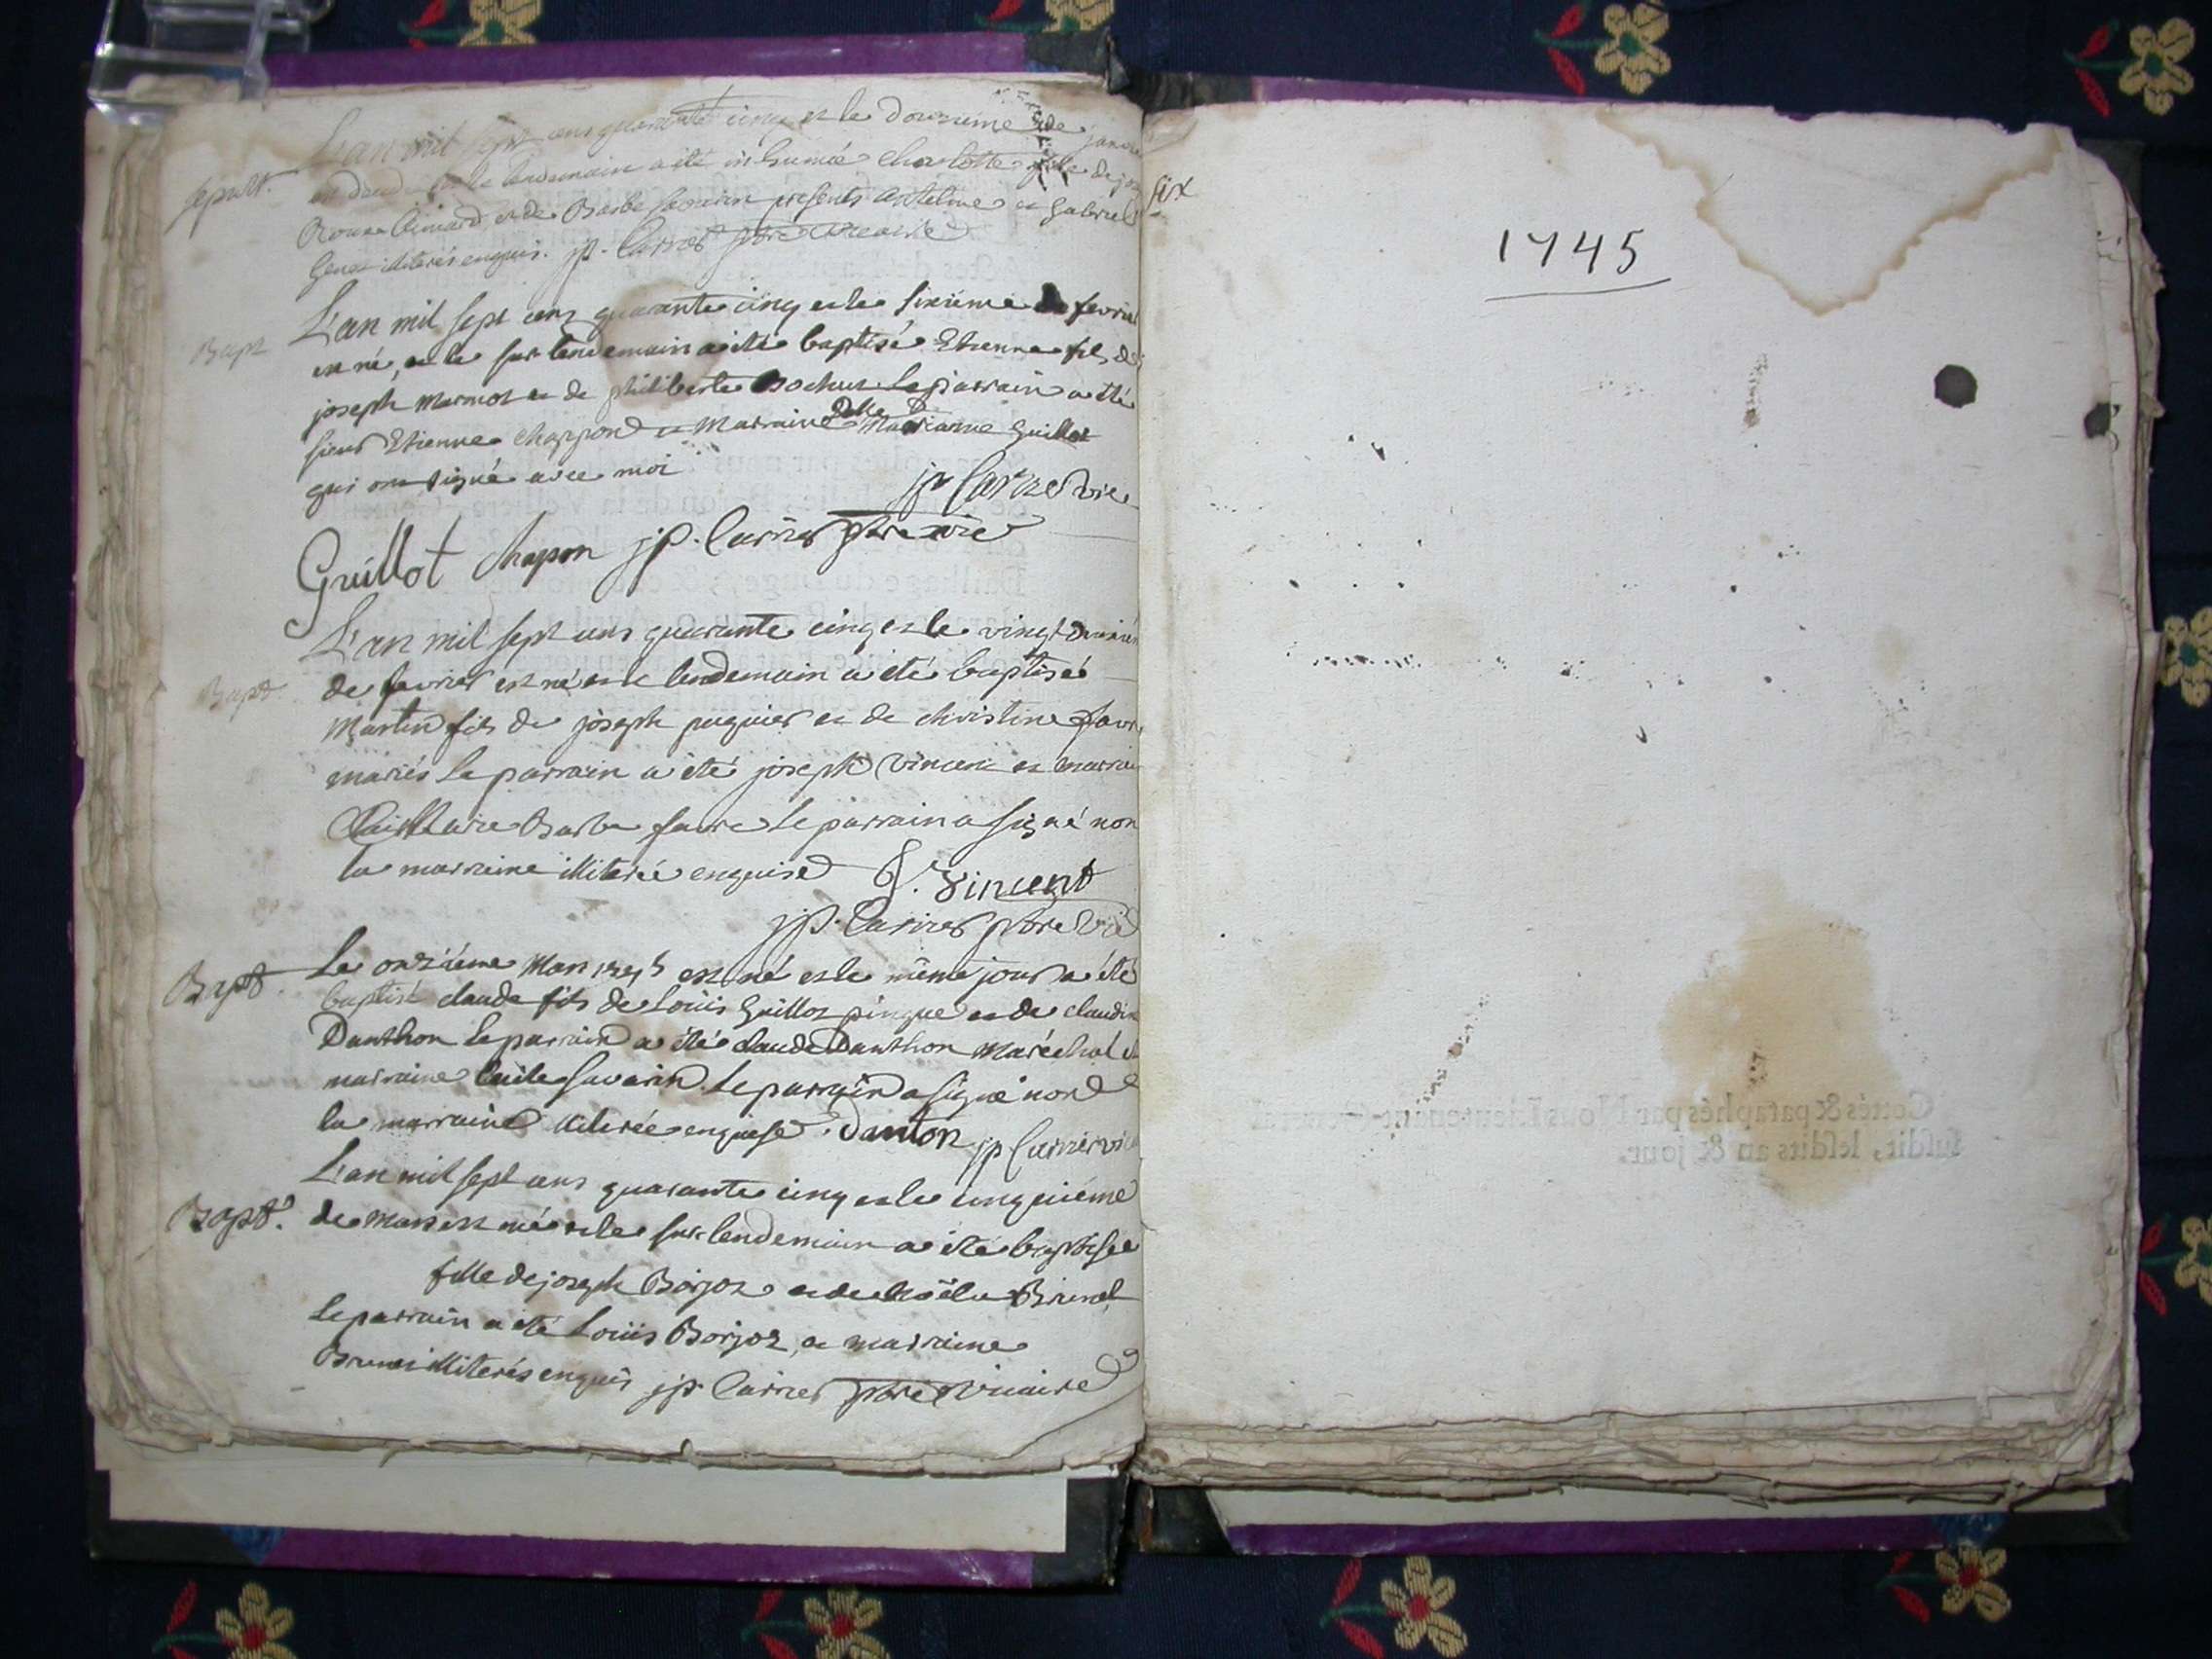 L'an mil sept cens quarante cinq et le douzieme de janvier
sepult.
est decedé et le lendemain a été inhumée charlotte fille de
et de Barbe savarin presents antelme et gabriel
illiterés enquis. jp. Carrier pbre vicaire
L'an mil sept cens quarante cinq et le sixieme de fevrier
Bapt
est né, et le surlendemain a été baptisé Etienne fils de
joseph marmot et de philiberte Bochus Le parrain a été
sieur Etienne chappon et marraine delle marianne guillot
qui ont signé avec moi
jp Carrier vic
Guillot chapon jp. Carrier pbre vic
L'an mil sept cens quarante cinq et le vingt deuxiem
Bapt.
de fevrier est né et le lendemain a été baptisé
Martin fils de joseph puguier et de christine favre
mariés Le parrain a été joseph vincent et marrai
Barbe favre Le parrain a signé non
la marraine illiterée enquise J. Vincent
jp. Carrier pbre vic
Bapt.
Le onziéme mars 1745 est né et le même jour a été
baptisé claude fils de Louis Guillot pingue et de claudin
Danthon Le parrain a été claude Danthon maréchal et
marraine Cecile savarin. Le parrain a signé non
la marraine illiterée enquise. Danton jp Carrier vic
L'an mil sept cens quarante cinq et le cinquiéme
Bapt.
de mars est née et le surlendemain a été baptisée
fille de joseph Borjot et de Noëlle Brunet
Le parrain a été Louis Borjot, et marraine
Brunet illiterés enquis jp. Carrier pbre vicaire
six
1745
Cottés & paraphés par Nous Lieutenant-General
susdit, lesdits an & jour.